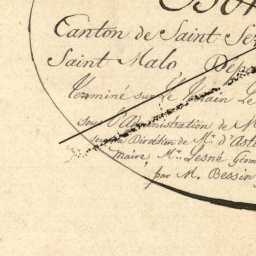 Canton de Saint Se
Saint Malo Dep
Terminé sur le Terrain Le
sous l'Administration de M
sous la Direction de Mr. d'Ast
Maire, Mr. Lesné Géom
par M. Bessin